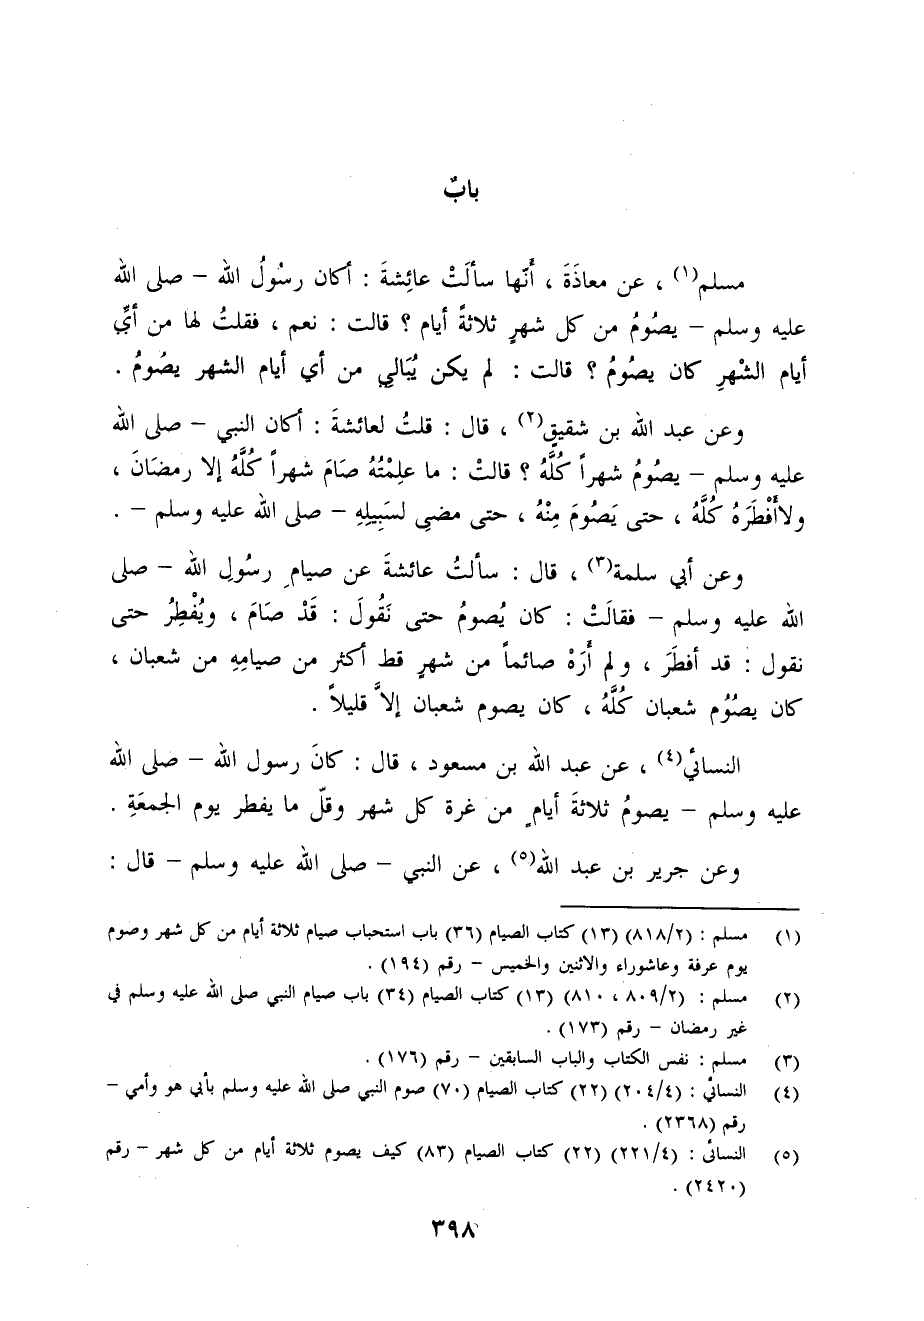 بابٌ
مسلم(١) ، عن معاذَةَ ، أَنّها سألَتْ عائِشةَ : أكان رسُولُ الله – صلى الله
عليه وسلم – يصُومُ من كل شهرٍ ثلاثةً أيام ؟ قالت : نعم ، فقلتُ لها من أيِّ
أيام الشْهرِ كان يصُومُ ؟ قالت : لم يكن يُبَالي من أي أيام الشهر يصُومُ .
وعن عبد الله بن شقيقٍ(٢) ، قال : قلتُ لعائشةَ : أكان النبي – صلى الله
عليه وسلم – يصُومُ شهراً كُلَّهُ ؟ قالتْ : ما علِمْتُهُ صَامَ شهراً كُلَّهُ إلا رمضَانَ ،
ولاأَفْطَرَهُ كُلَّهُ ، حتى يَصُومَ مِنْهُ ، حتى مضىِ لسَبِيلِهِ – صلى الله عليه وسلم – .
وعن أبي سلمة(٣) ، قال : سألتُ عائشةَ عن صيامِ رسُولِ الله – صلى
الله عليه وسلم – فقالَتْ : كان يُصومُ حتى نَقُولَ : قَدْ صَامَ ، ويُفْطِرُ حتى
نقول : قد أفطَرَ ، ولم أَرَهْ صائماً من شهرٍ قط أكثر من صيامِهِ من شعبان ،
كان يصُوُم شعبان كُلَّهُ ، كان يصوم شعبان إلاَّ قليلاً .
النسائي(٤) ، عن عبد الله بن مسعود ، قال : كانَ رسول الله – صلى الله
عليه وسلم – يصومُ ثلاثةَ أيامٍ من غرة كل شهر وقلّ ما يفطر يوم الجمعَةِ .
وعن جرير بن عبد الله(٥) ، عن النبي – صلى الله عليه وسلم – قال :
(١) مسلم : (٨١٨/٢) (١٣) كتاب الصيام (٣٦) باب استحباب صيام ثلاثة أيام من كل شهر وصوم
يوم عرفة وعاشوراء والاثنين والخميس – رقم (١٩٤) .
(٢) مسلم : (٨٠٩/٢ ، ٨١٠) (١٣) كتاب الصيام (٣٤) باب صيام النبي صلى الله عليه وسلم في
غير رمضان – رقم (١٧٣) .
(٣) مسلم : نفس الكتاب والباب السابقين – رقم (١٧٦) .
(٤) النسائي : (٢٠٤/٤) (٢٢) كتاب الصيام (٧٠) صوم النبي صلى الله عليه وسلم بأبي هو وأمي –
رقم (٢٣٦٨) .
(٥) النسائي : (٢٢١/٤) (٢٢) كتاب الصيام (٨٣) كيف يصوم ثلاثة أيام من كل شهر – رقم
(٢٤٢٠) .
٣٩٨